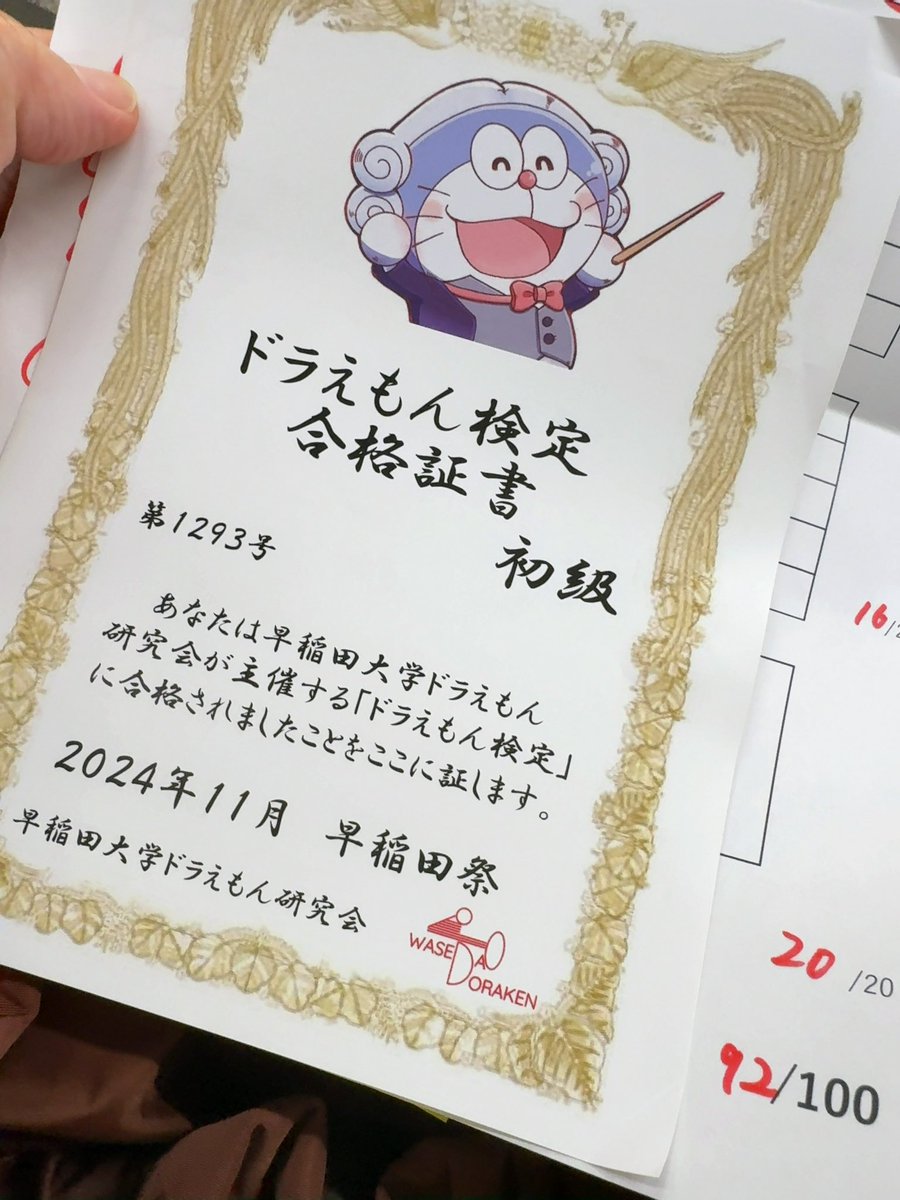 ドラえもん検定
合格証書
第1293号
初級
あなたは早稲田大学ドラえもん
研究会が主催する「ドラえもん検定」
に合格されましたことをここに証します。
2024年11月 早稲田祭
早稲田大学ドラえもん研究会
WASEDA
DORAKEN
16/2
20/20
92/100